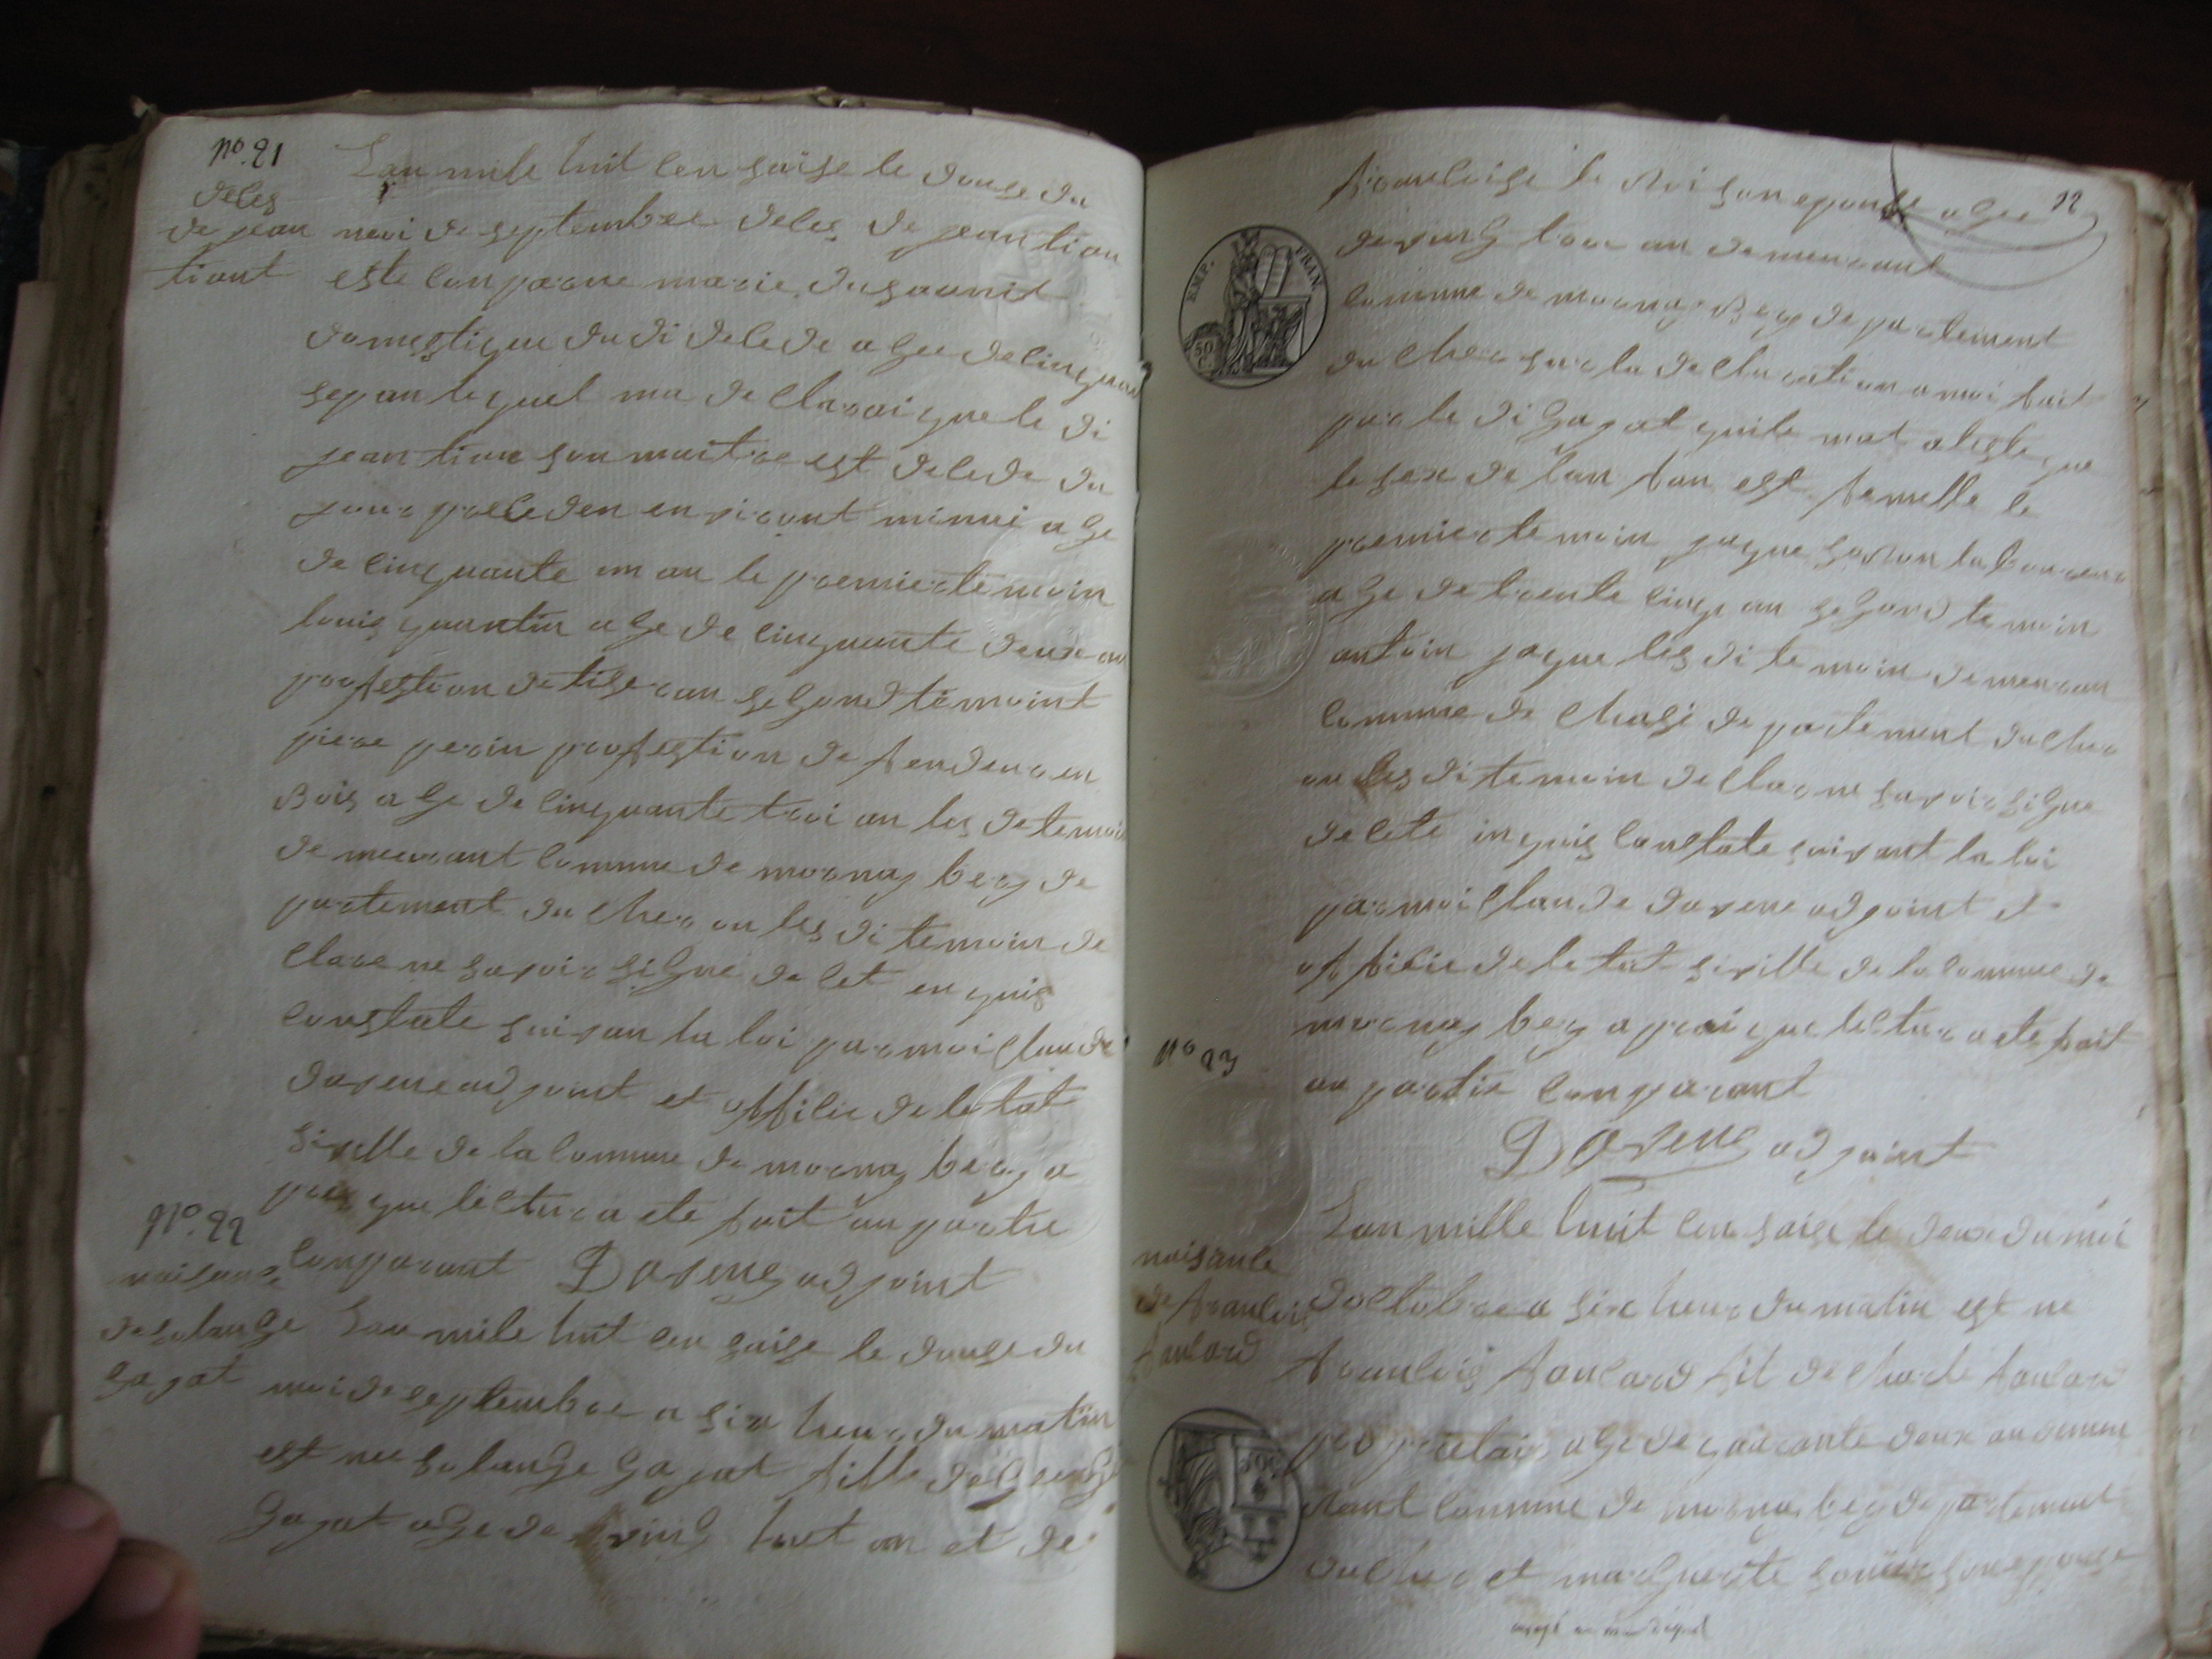 no. 21
deles
de jean
tiont
Lan mile huit cen saise le douse du
moi de septembre deles de jean tion
este conparue marie
domestique du di delede agee de cinquante
sep an lequel ma de clarai que le di
jean tion son maitre est delede du
jour preceden en viront minui age
de cinquante un an le premier temoin
louis quantin age de cinquante deux an
profestion de tiseran segond temoint
piere perin profestion de fendeur en
Bois age de cinquante troi an les de temoin
demeurant commune de mornay bery de
partement du cher ou les di temoin de
clare ne savoir signe de cet en quis
constate suivan la loi par moi claude
davene adjoint et officie de letat
siville de la commune de mornay bery a
pres que lectur a ete fait au partie
conparant Davene adjoint
no. 22
naisance
de solange
gagat
Lan mile huit cen saise le douse du
moi de septembre a six heur du matin
est nee solange gagat fille de
gagat age de vingt huit an et de
12
francoise le roi son epouse agee
de vingt troi an demeurant
commune de mornay Bery departement
du cher sur la declaration a moi fait
par le di gagat quile mat ateste que
le sex de lan fan est femelle le
premier temoin jaque savon laboureur
age de trente cinq an segond temoin
antoin jaque les di temoin demeuran
commune de chasi departement du cher
ou les di temoin declare ne savoir signe
de cete in quis constate suivant la loi
par moi claude davene adjoint et
officie de letat siville de la commune de
mornay bery a prai que lectur a ete fait
au partie conparant
Davene adjoint
no 23
naisance
de francois
foucard
Lan mille huit cen saise le deux du moi
doctobre a six heur du matin est ne
francois foucard fil de charle foucard
proprietair age de quarante deux an demeu
rant commune de mornay bery departement
du cher et marguerite son epouse
EMP. FRAN.
50 C.
50 C.